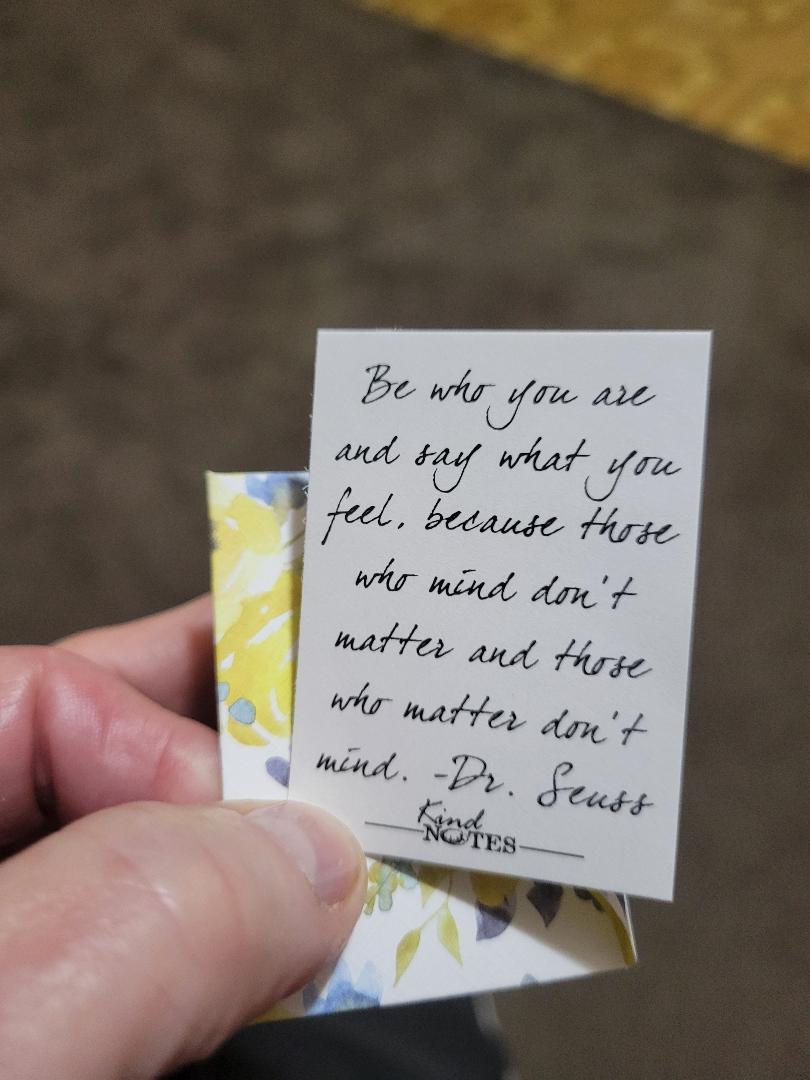 Be who you are
and say what you
feel, because those
who mind don't
matter and those
who matter don't
mind. -Dr. Seuss
Kind
NOTES